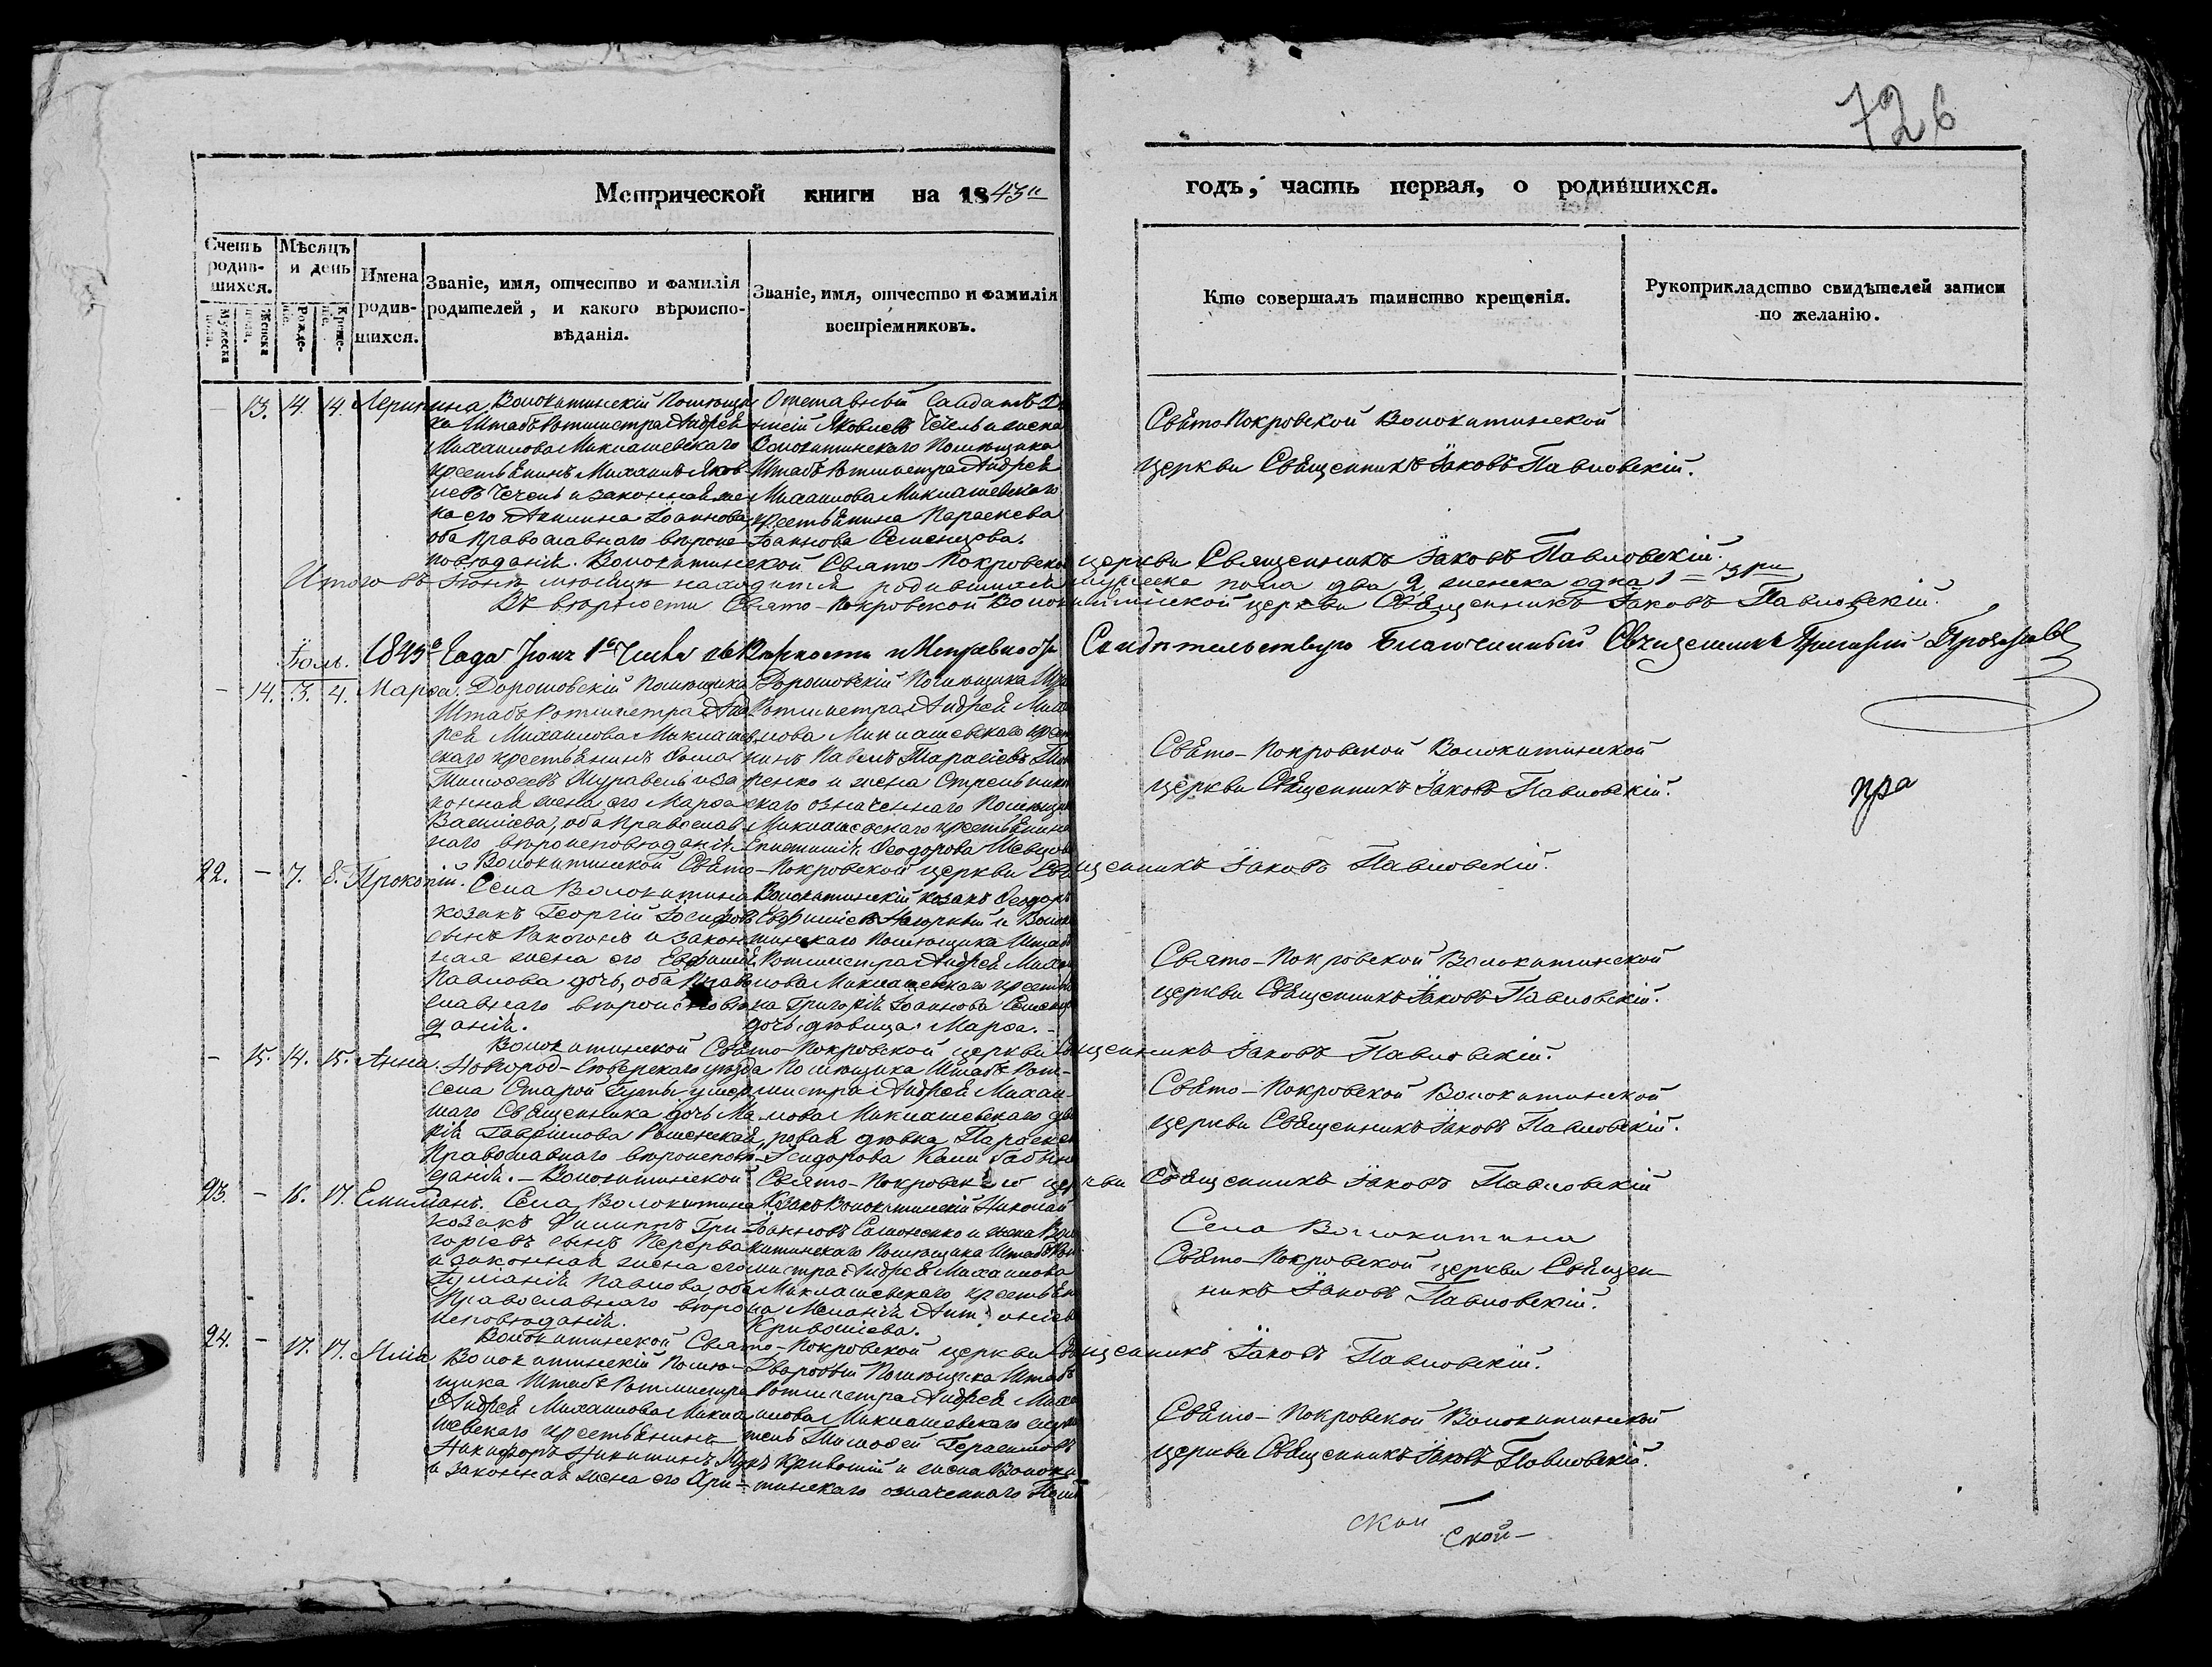 726
Метрической книги на 1843й
годъ, часть первая, о родившихся.
Счетъ родив-шихся.
Мужеска пола.
Женска пола.
Мѣсяцъ и день
Рожде-нія.
Креще-нія.
Имена родив-шихся.
Званіе, имя, отчество и фамилія
родителей, и какого вѣроиспо-
вѣданія.
Званіе, имя, отчество и фамилія
воспріемниковъ.
Кто совершалъ таинство крещенія.
Рукоприкладство свидѣтелей записи
по желанію.
13. 14. 14.
Волокитинскій Помѣщи
ка Штабъ Ротмистра Андрея
Михаилова Миклашевскаго
крестьянинъ Михаилъ Яков-
левъ Чечель и законная же
на его Акилина Іоаннова
оба православнаго вѣроис
повѣданія.
Отставный Салдатъ
Яковлевъ
Волокитинскаго Помѣщика
Штабъ Ротмистра Андрея
Михаилова Миклашевскаго
крестьянина Параскева
Іоаннова Семенцова.
Свято Покровской Волокитинской
церкви Священникъ Іаковъ Павловскій.
Волокитинской Свято Покровской церкви Священникъ Іаковъ Павловскій.
Итого въ Іюнѣ мѣсяцѣ находится родившихся мужеска пола два 2, женска одна 1 = три
Въ вѣрности Свято-Покровской Волокитинской церкви Священникъ Іаковъ Павловскій.
Іюль.
1843го Года Іюля 1го Числа
Свидѣтельствую Благочинный Священникъ
14. 3. 4. Марѳа.
Дорошовскій Помѣщика
Штабъ Ротмистра Анд
рея Михаилова Миклашев
скаго крестьянинъ
Тимоѳеевъ Журавель и за
конная жена его Марѳа
Васильева, оба Православ
наго вѣроисповѣданія.
Дорошовскій Помѣщика
Ротмистра Андрея Миха
илова Миклашевскаго крест
нинъ Павелъ Тарасіевъ
ренко и жена Стрельник
скаго означеннаго Помѣщи
Миклашевскаго крестьянина
Ѳеодорова Шевцова
Свято-Покровской Волокитинской
церкви Священникъ Іаковъ Павловскій.
пра
Волокитинской Свято-Покровской церкви Священникъ Іаковъ Павловскій.
22. - 7. 8. Прокопій.
Села Волокитина
козакъ Георгій Іосифовъ
сынъ Ракогонъ и закон
ная жена его Евфимія
Павлова дочь, оба Право
славнаго вѣроисповѣ
данія.
Волокитинскій козакъ Ѳеодоръ
Евфиміевъ Нагорный и Волок
тинскаго Помѣщика Штабъ
Ротмистра Андрея Миха
илова Миклашевскаго крестьян
ка Григорія Іоаннова
дочь дѣвица Марѳа.
Свято-Покровской Волокитинской
церкви Священникъ Іаковъ Павловскій.
Волокитинской Свято-Покровской церкви Священникъ Іаковъ Павловскій.
- 15. 14. 15. Анна.
Новгород-Сѣверскаго уѣзда
села Старой Гуты умер
шаго Священника дочь Ма
рія Гавріилова
Православнаго вѣроисповѣ
данія.
Помѣщика Штабъ Рот-
мистра Андрея Михаи
лова Миклашевскаго дво
ровая дѣвка Параскев
Исидорова
Свято-Покровской Волокитинской
церкви Священникъ Іаковъ Павловскій.
Волокитинской Свято-Покровской церкви Священникъ Іаковъ Павловскій
23. - 16. 17. Емиліанъ.
Села Волокитина
козакъ Филиппъ Гри
горіевъ сынъ Перерва
и законная жена его
Павлова, оба
Православнаго вѣро
исповѣданія.
Козакъ Волокитинскій Николай
Іоанновъ Самоненко и жена Воло
китинскаго Помѣщика Штабъ Рот
мистра Андрея Михаилова
Миклашевскаго крестьян
ина Меланія Антоніева
Кривошіева.
Села Волокитина
Свято-Покровской церкви Священ-
никъ Іаковъ Павловскій.
Волокитинской Свято-Покровской церкви Священникъ Іаковъ Павловскій.
24. - 17. 17. Илія
Волокитинскій Помѣ-
щика Штабъ Ротмистра
Андрея Михаилова Микла
шевскаго крестьянинъ
Никифоръ Никитинъ
и законная жена его Ири-
Дворовый Помѣщика Штабъ
Ротмистра Андрея Миха
илова Миклашевскаго служи
тель Тимоѳей Герасимовъ
Кривошій и жена Волоки
тинскаго означеннаго Помѣ
Свято-Покровской Волокитинской
церкви Священникъ Іаковъ Павловскій.
ской
ской-